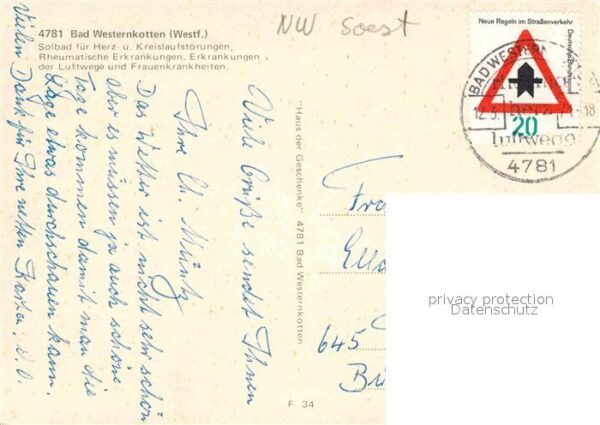 4781 Bad Westernkotten (Westf.)
Solbad für Herz- u. Kreislaufstörungen,
Rheumatische Erkrankungen, Erkrankungen
der Luftwege und Frauenkrankheiten.
NW Soest
Neue Regeln im Straßenverkehr
Deutsche Bundespost
20
BAD WESTERN
12.3. 71-18
herz
luftwege
4781
"Haus der Geschenke" 4781 Bad Westernkotten
F 34
Viele Grüße sendet Ihnen
Ihre Ch. Müntz
Das Wetter ist nicht sehr schön
aber es müssen ja auch schöne
Tage kommen damit man die
etwas durchschauen kann.
Vielen Dank für Ihre netten
Fra
Ella
645
privacy protection
Datenschutz